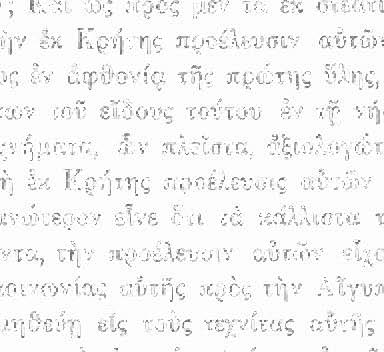 ; Καὶ ὡς πρὸς μὲν τὰ ἐκ στεατί
ὴν ἐκ Κρήτης προέλευσιν αὐτῶν
ς ἐν ἀφθονίᾳ τῆς πρώτης ὕλης,
των τοῦ εἴδους τούτου ἐν τῇ νή
χνήματα, ὧν πλεῖστα, ἀξιολογώτ
ἡ ἐκ Κρήτης προέλευσις αὐτῶν
ανώτερον εἶνε ὅτι τὰ κάλλιστα
ντα, τὴν προέλευσιν αὐτῶν εἶχο
κοινωνίας αὐτῆς πρὸς τὴν Αἴγυπ
μηθεύη εἰς τοὺς τεχνίτας αὐτῆς